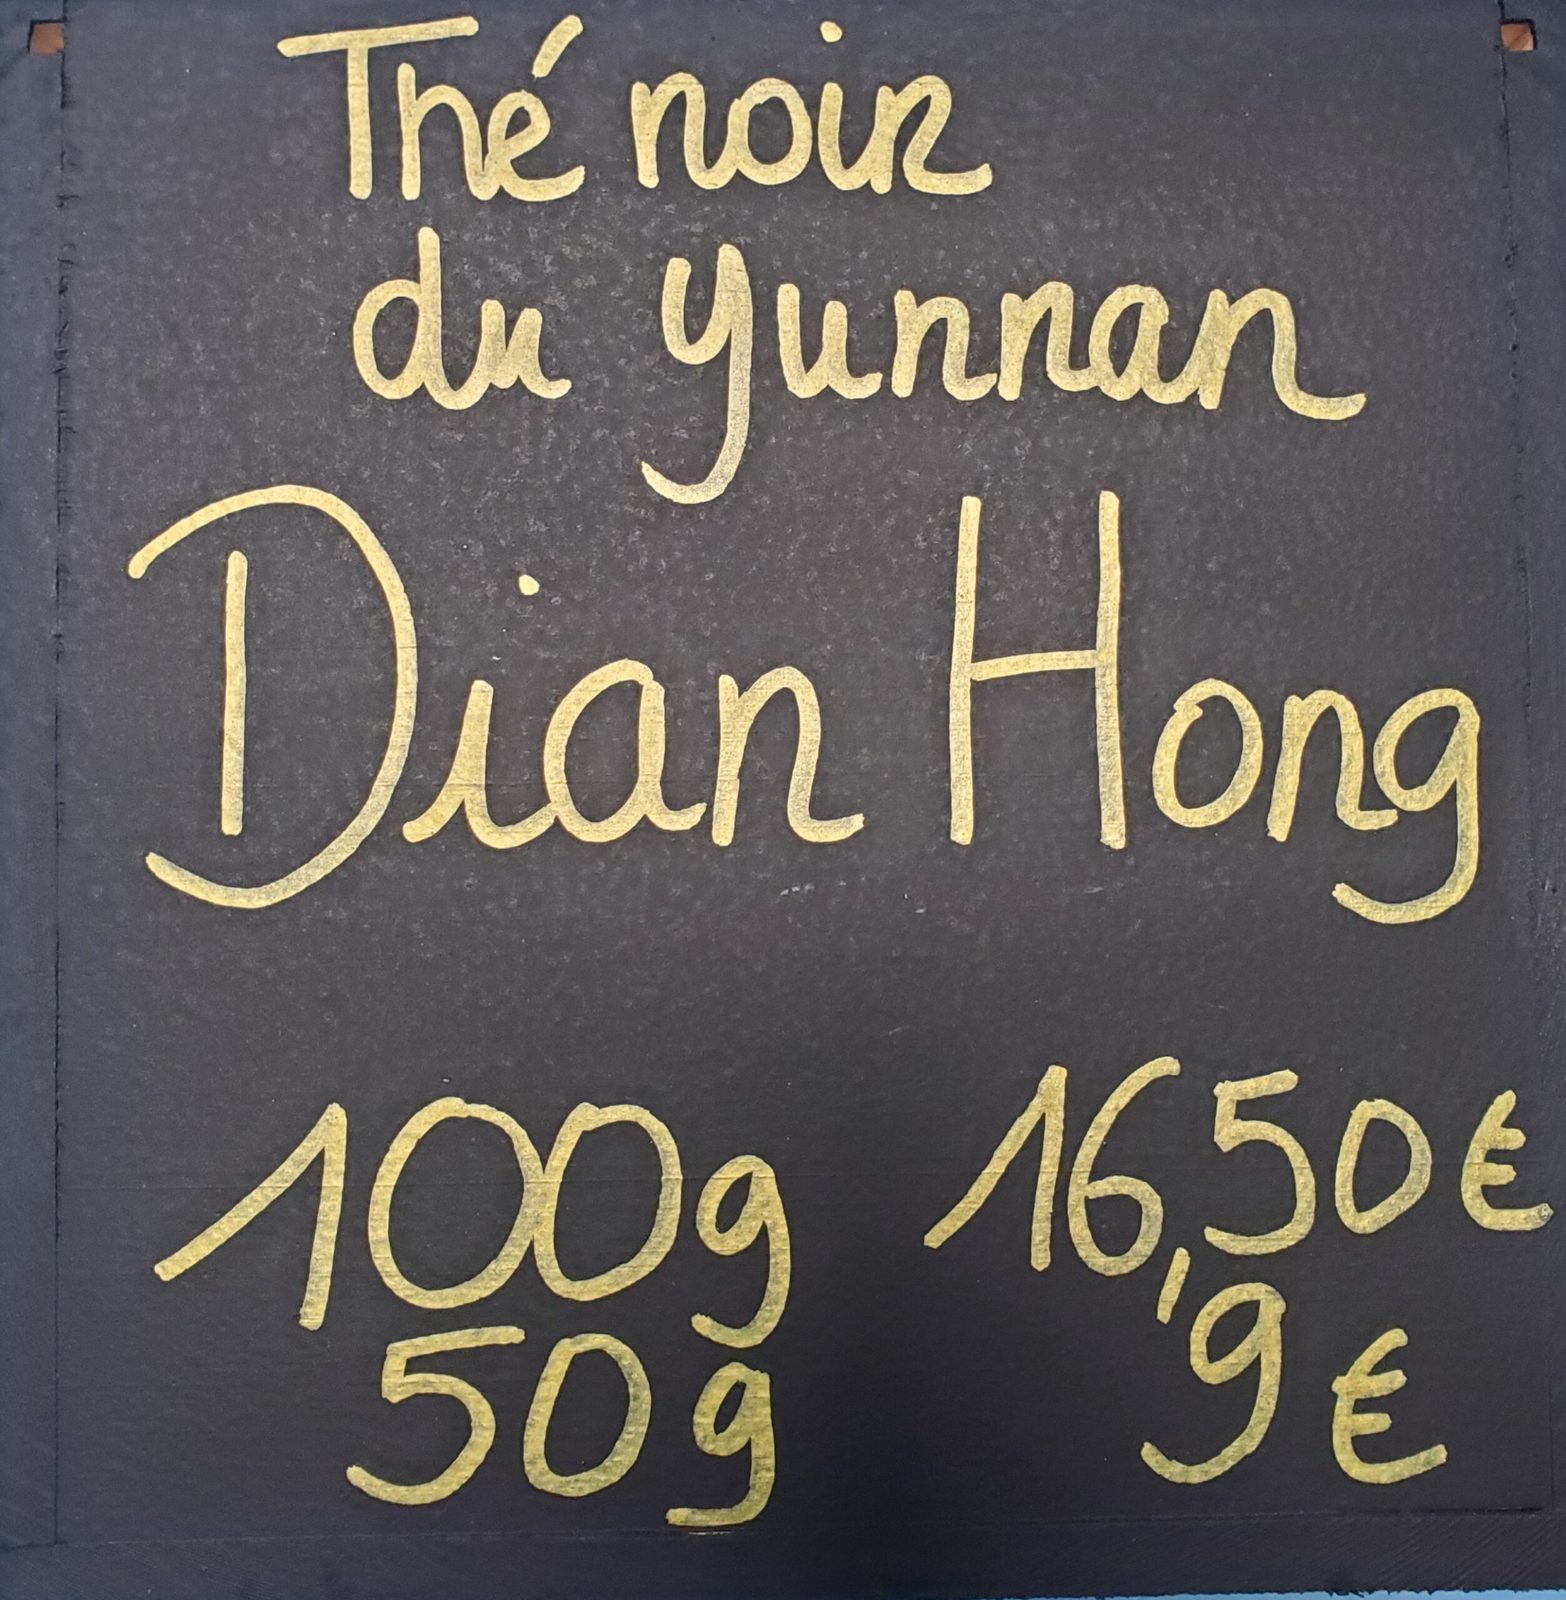 Thé noir
du Yunnan
Dian Hong
100g 16,50€
50g 9€